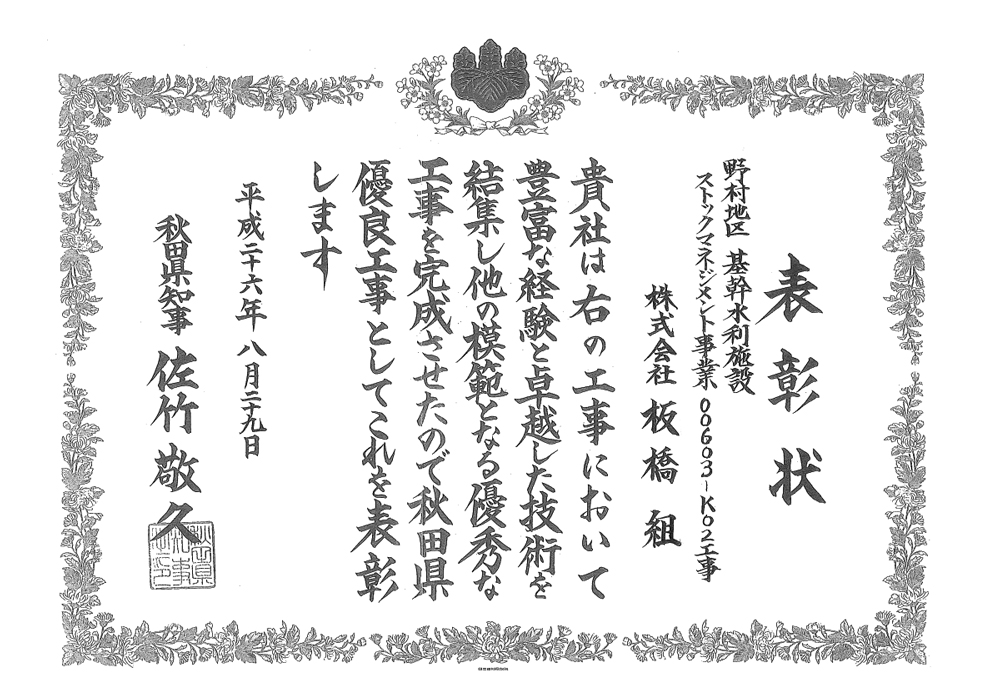 表彰状
野村地区 基幹水利施設
ストックマネジメント事業 00603-K02工事
株式会社 板橋組
貴社は右の工事において
豊富な経験と卓越した技術を
結集し他の模範となる優秀な
工事を完成させたので秋田県
優良工事としてこれを表彰
します
平成二十六年八月二十九日
秋田県知事 佐竹敬久